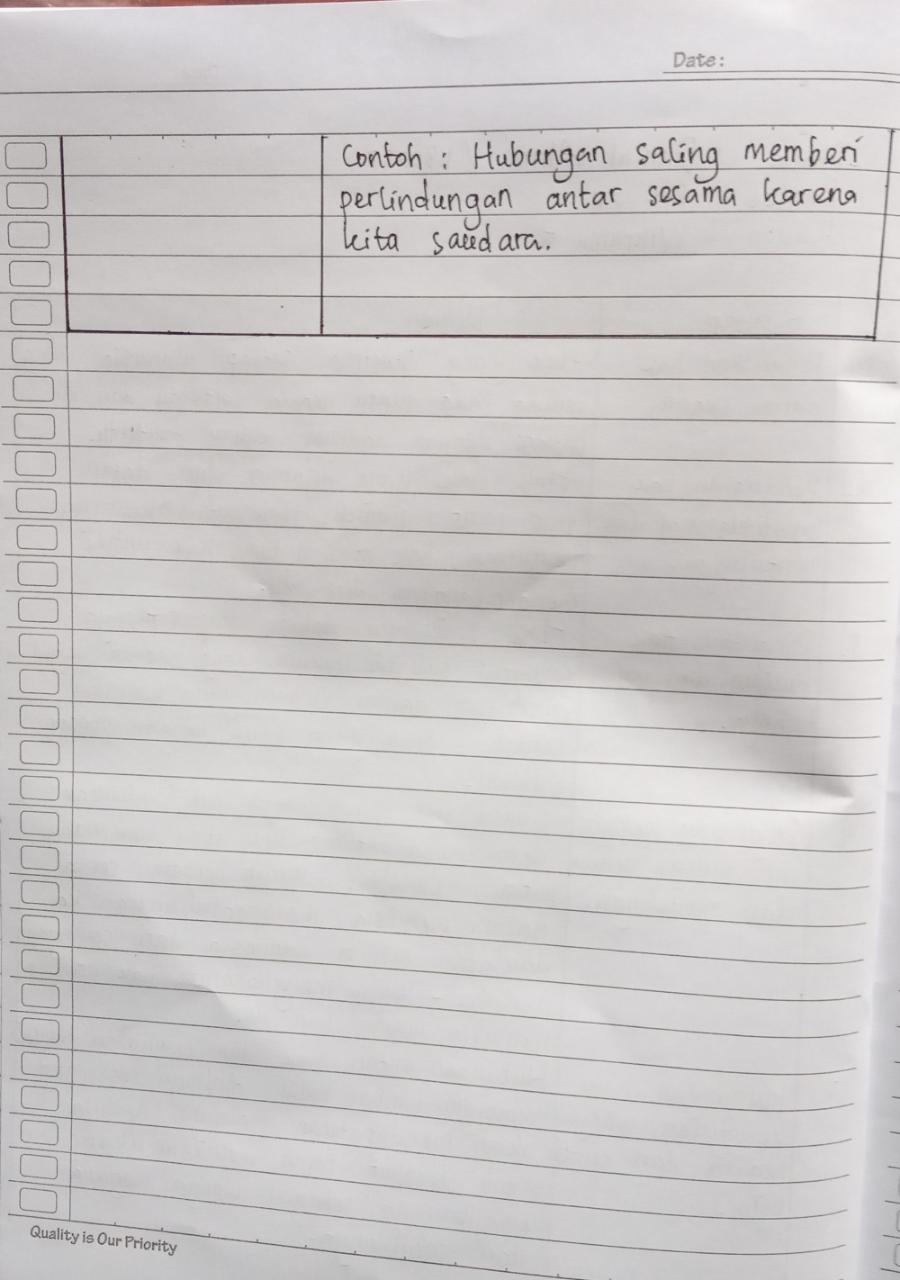 Date:
Contoh : Hubungan saling memberi
perlindungan antar sesama karena
kita saudara.
Quality is Our Priority